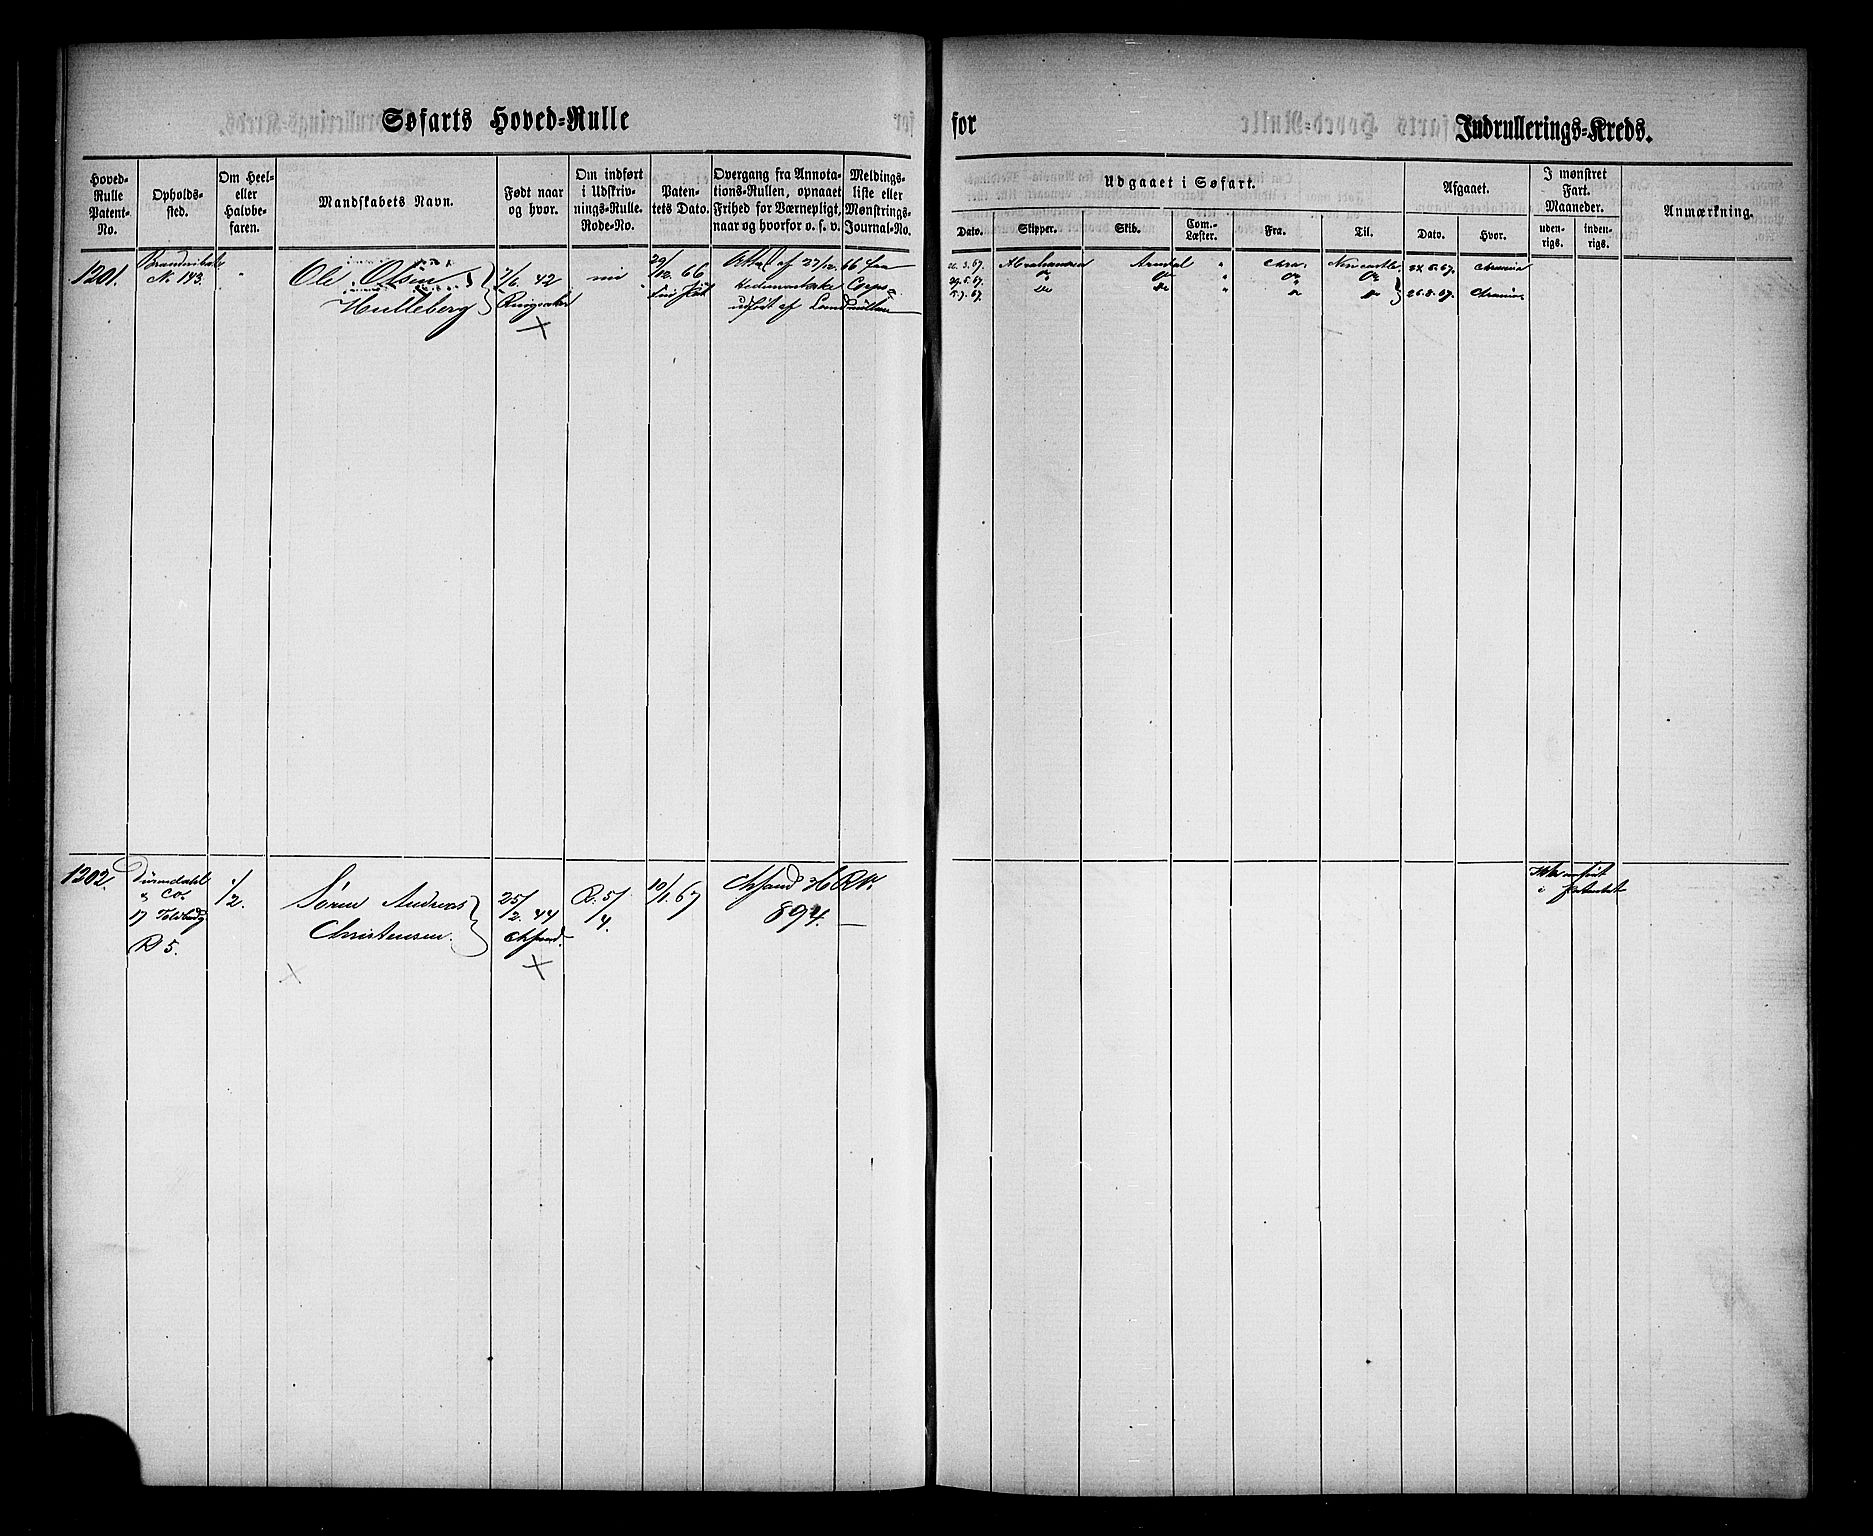 Søfarts Hoved-Rulle
for
Indrullerings-Kreds.
Hoved-Rulle Patent-No.
Opholds-sted.
Om Heel- eller Halvbe-faren.
Mandskabets Navn.
Født naar og hvor.
Om indført i Udskriv-nings-Rulle. Rode-No.
Paten-tets Dato.
Overgang fra Annota-tions-Rullen, opnaaet Frihed for Værnepligt, naar og hvorfor o. s. v.
Meldings-liste eller Mønstrings-Journal-No.
Udgaaet i Søfart.
Dato.
Skipper.
Skib.
Com.-Læster.
Fra.
Til.
Afgaaet.
Dato.
Hvor.
I mønstret Fart. Maaneder.
uden-rigs.
inden-rigs.
Anmærkning.
1201.
N. 143.
Ole Olsen
Hulleberg
7/6 42
Ringsaker
29/12 66
af 27/12 66 fra
Corps
udslet af Land
22.3.67. Abrahamsen Arendal " Chra. Newcastle 24.5.67. Christiania
29.5.67. Do Do " Do Do
5.7.67. Do Do " " Do 26.8.67. Christiania
1202.
& Co.
17 Toldbodg
R 5.
1/2
Søren Andreas
Christensen.
25/2. 44
Chrsand.
R. 5/4.
10/1. 67
Chrsand H R N.
894.
Ikke
i Patentet